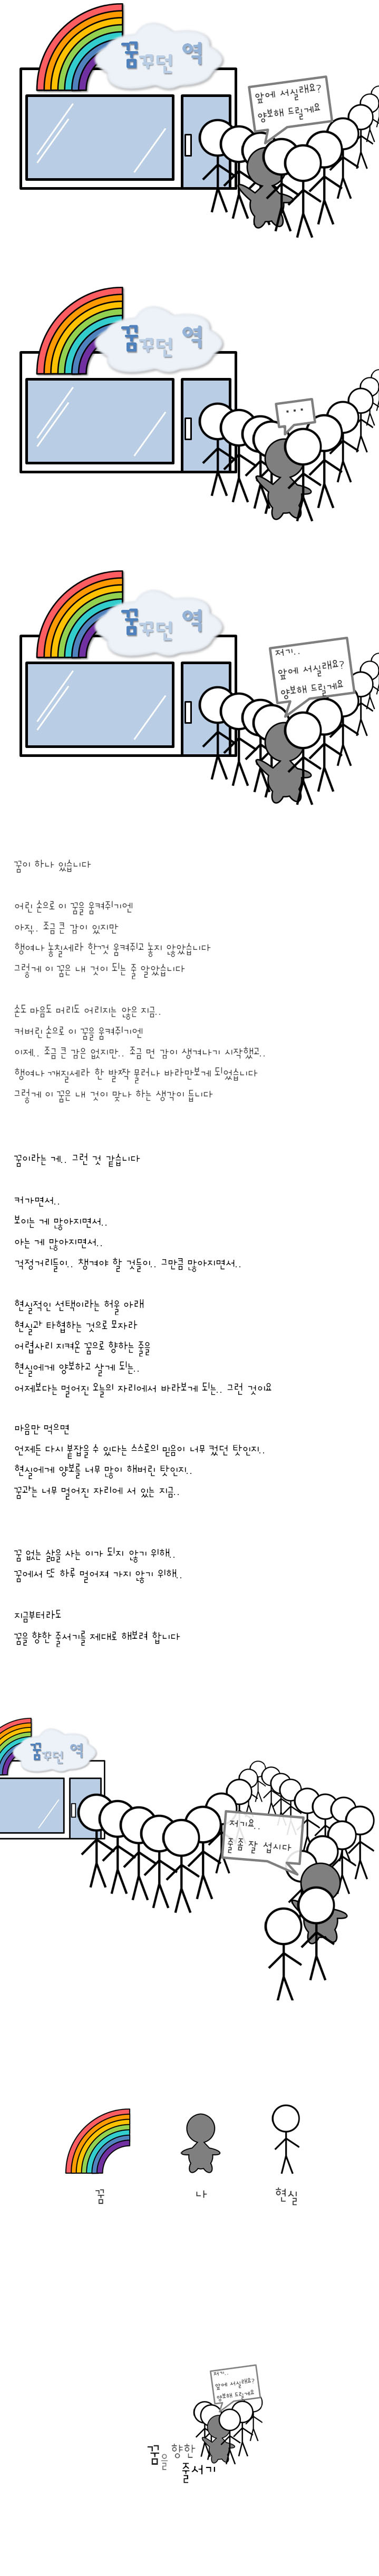 꿈꾸던 역
앞에 서실래요?
양보해 드릴게요
꿈꾸던 역
...
꿈꾸던 역
저기..
앞에 서실래요?
양보해 드릴게요
꿈이 하나 있습니다
어린 손으로 이 꿈을 움켜쥐기엔
아직.. 조금 큰 감이 있지만
행여나 놓칠세라 한껏 움켜쥐고 놓지 않았습니다
그렇게 이 꿈은 내 것이 되는 줄 알았습니다
손도 마음도 머리도 어리지는 않은 지금..
커버린 손으로 이 꿈을 움켜쥐기엔
이제.. 조금 큰 감은 없지만.. 조금 먼 감이 생겨나기 시작했고..
행여나 깨질세라 한 발짝 물러나 바라만보게 되었습니다
그렇게 이 꿈은 내 것이 맞나 하는 생각이 듭니다
꿈이라는 게.. 그런 것 같습니다
커가면서..
보이는 게 많아지면서..
아는 게 많아지면서..
걱정거리들이.. 챙겨야 할 것들이.. 그만큼 많아지면서..
현실적인 선택이라는 허울 아래
현실과 타협하는 것으로 모자라
어렵사리 지켜온 꿈으로 향하는 줄을
현실에게 양보하고 살게 되는..
어제보다는 멀어진 오늘의 자리에서 바라보게 되는.. 그런 것이요
마음만 먹으면
언제든 다시 붙잡을 수 있다는 스스로의 믿음이 너무 컸던 탓인지..
현실에게 양보를 너무 많이 해버린 탓인지..
꿈과는 너무 멀어진 자리에 서 있는 지금..
꿈 없는 삶을 사는 이가 되지 않기 위해..
꿈에서 또 하루 멀어져 가지 않기 위해..
지금부터라도
꿈을 향한 줄서기를 제대로 해보려 합니다
꿈꾸던 역
저기요..
줄 좀 잘 섭시다
꿈
나
현실
저기..
앞에 서실래요?
양보해 드릴게요
꿈을 향한
줄서기